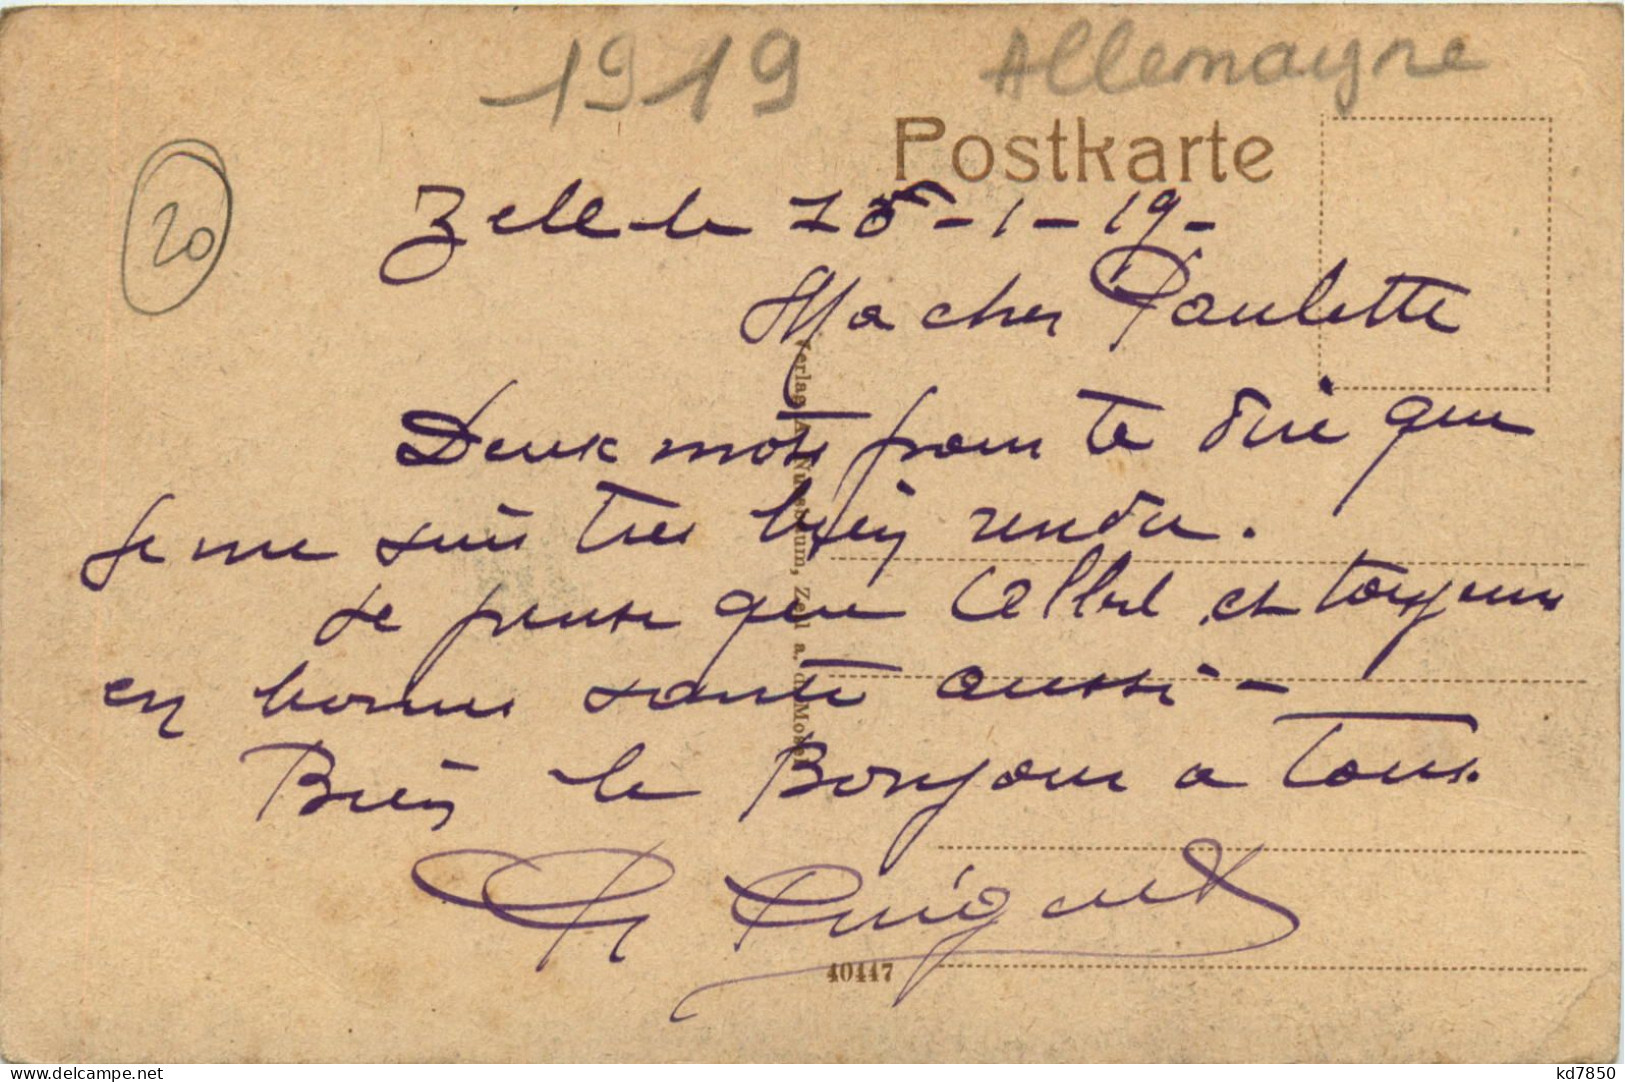 1919 Allemagne
Postkarte
20
Zell le 18-1-19-
Ma cher Paulette
Deux mots pour te dire que
je me suis tres bien rendu.
Je pense que et toujours
en bonne sante aussi -
Bien le Bonjour a tous.
Verlag A. Nussbaum, Zell a. d. Mosel
40447
kd7850